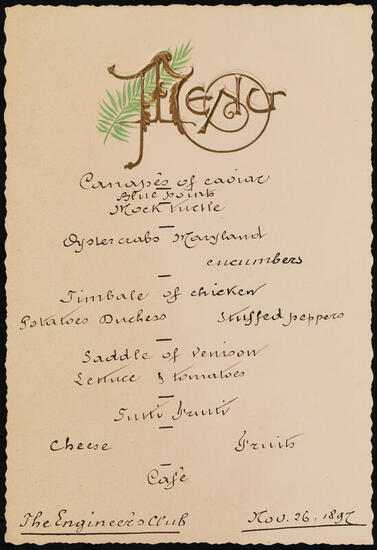 Menu
Canapès of caviar
Blue Points
Mock turtle
Oystercrabs Maryland
cucumbers
Timbale of chicken
Potatoes Duchess Stuffed peppers
Saddle of venison
Lettuce & tomatoes
Tutti Frutti
Cheese Fruits
Cafè
The Engineer's Club Nov. 26, 1897